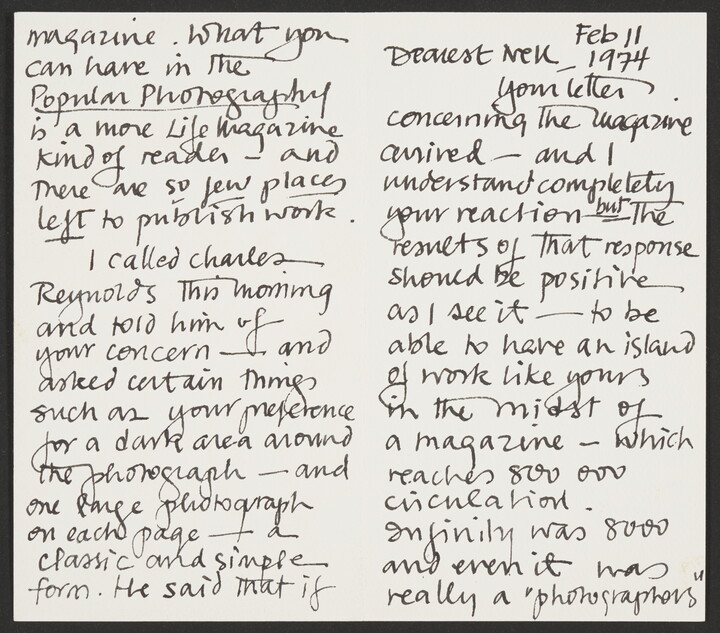 Feb 11
Dearest Nell _ 1974
your letter
concerning the magazine
arrived — and I
understand completely
your reaction but the
results of that response
should be positive
as I see it — to be
able to have an island
of work like yours
in the midst of
a magazine — which
reaches 800 000
circulation.
Infinity was 8000
and even it was
really a "photographers"
magazine. What you
can have in the
Popular Photography
is a more Life Magazine
kind of reader — and
there are so few places
left to publish work.
I called Charles
Reynolds this morning
and told him of
your concern — and
asked certain things
such as your preference
for a dark area around
the photograph — and
one large photograph
on each page — a
classic and simple
form. He said that if